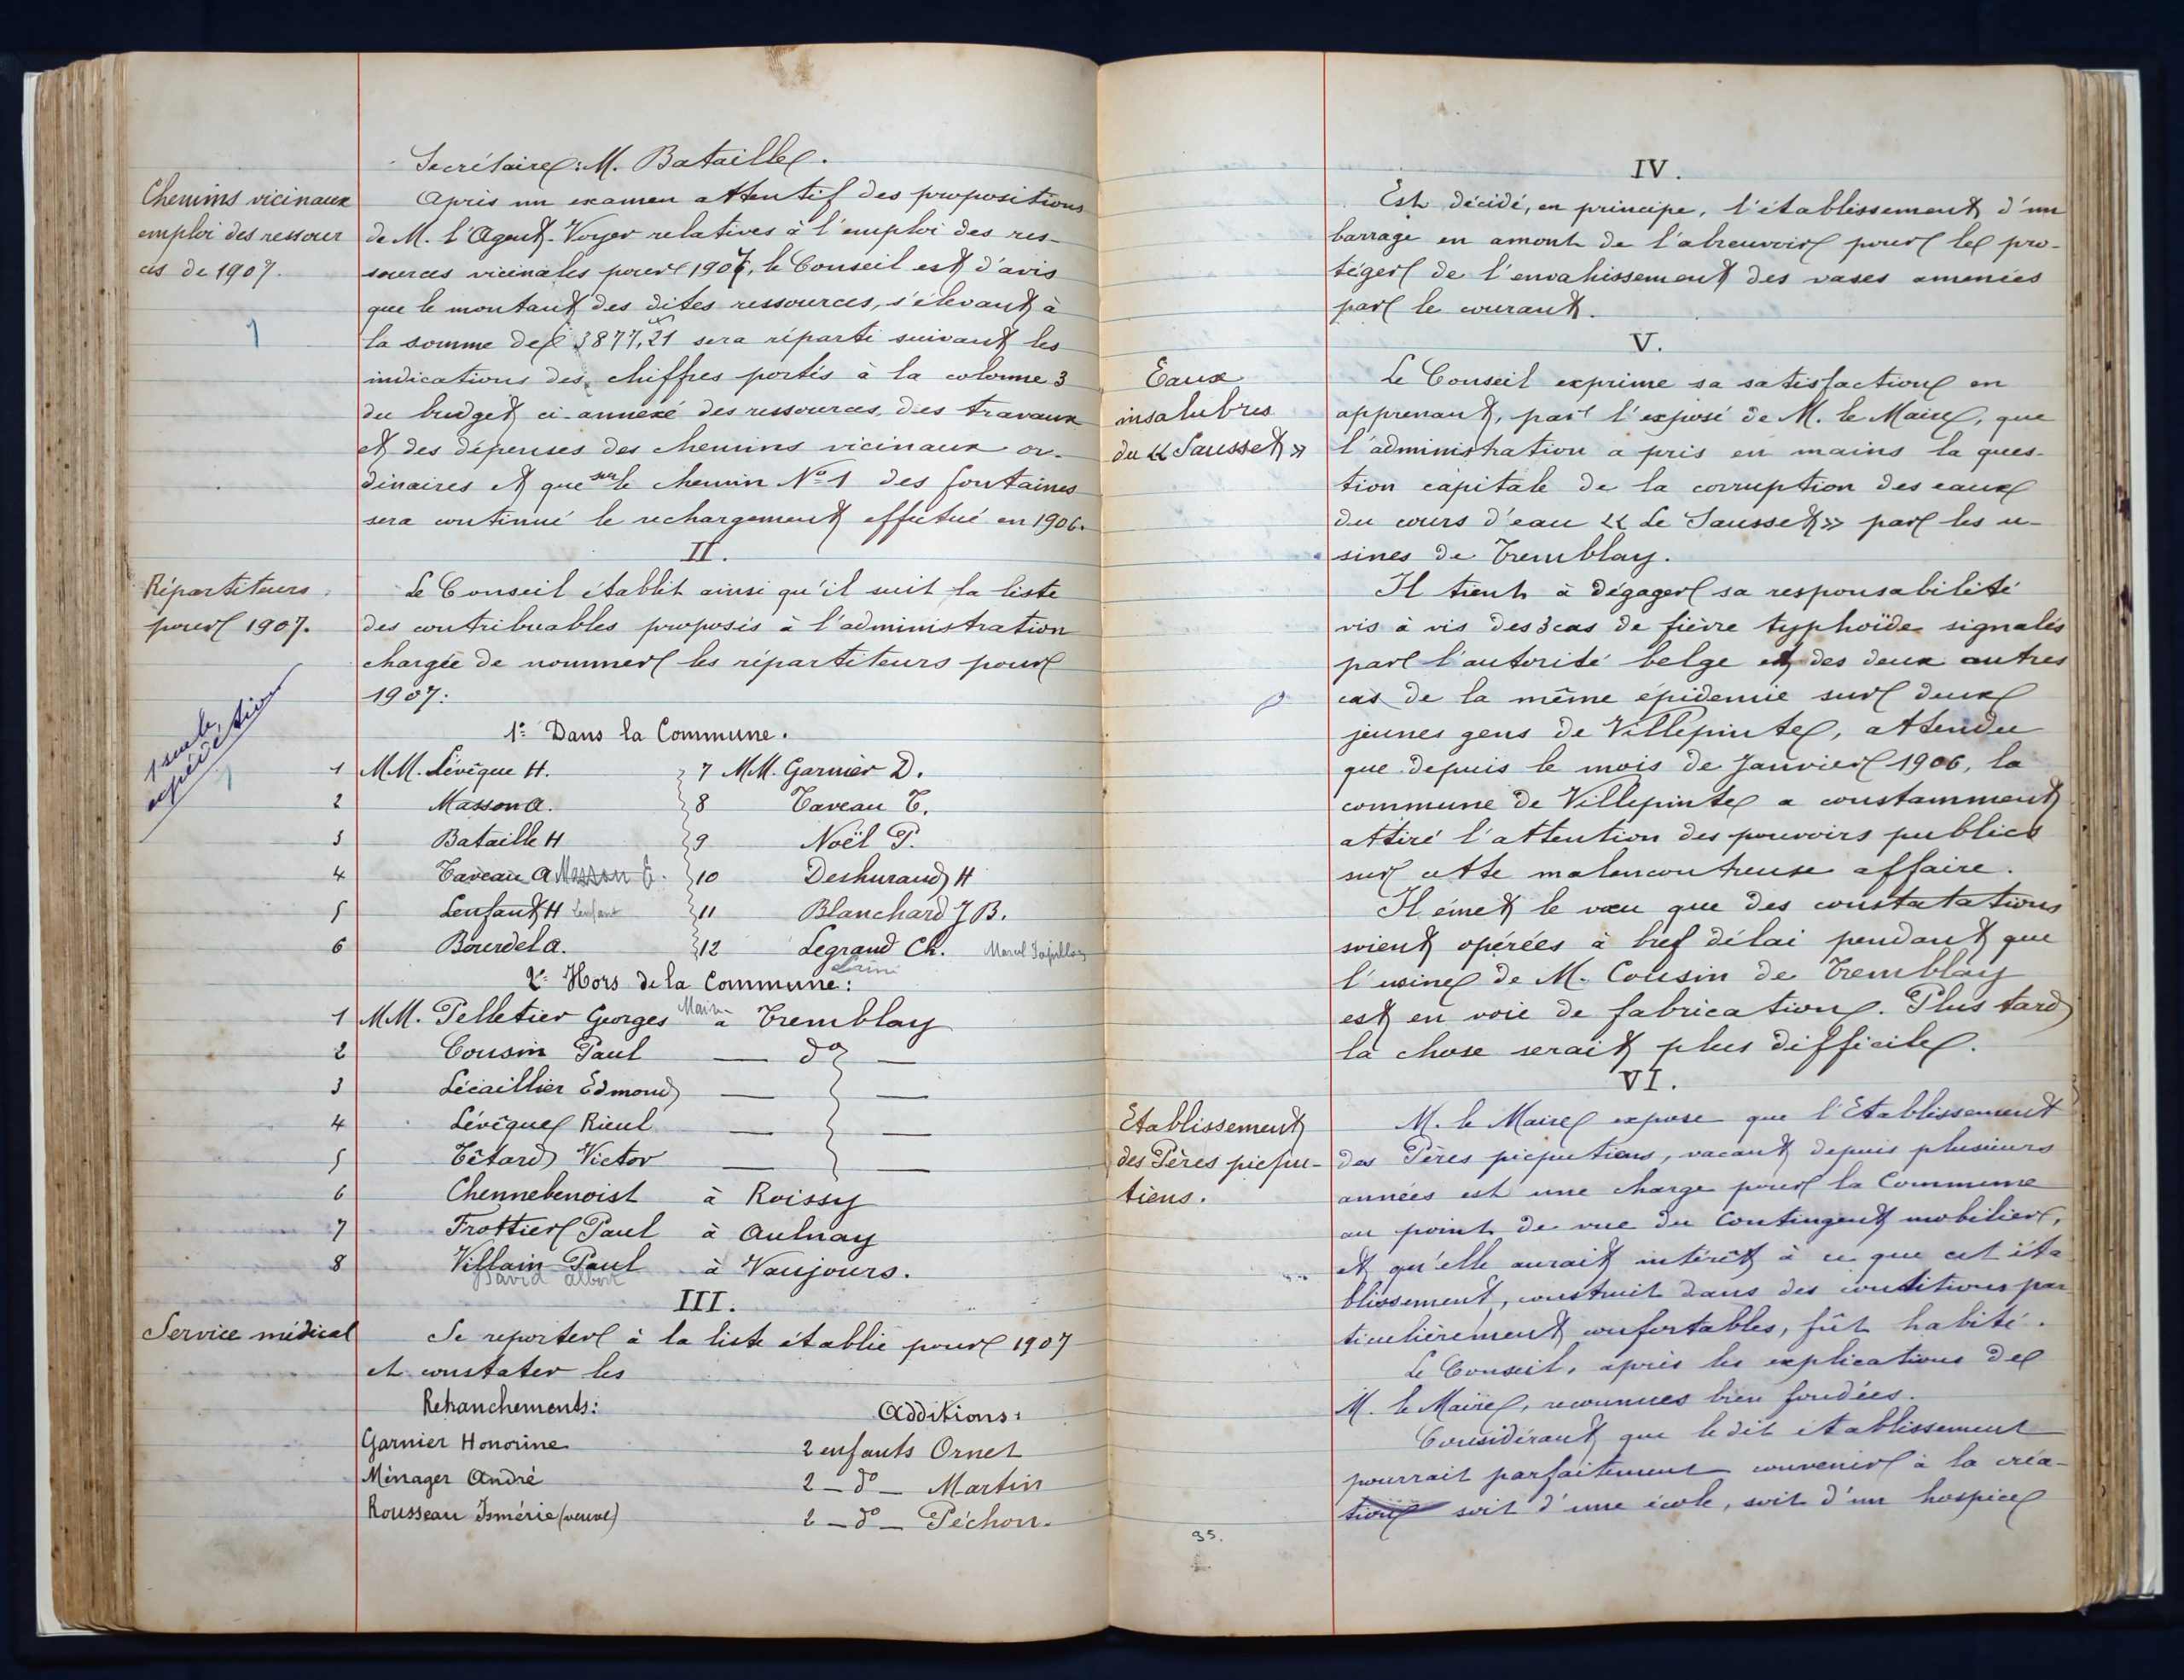 Secrétaire: M. Bataille.
Chemins vicinaux
emploi des ressour
ces de 1907.
1
Après un examen attentif des propositions
de M. l'Agent-Voyer relatives à l'emploi des res-
sources vicinales pour 1907, le Conseil est d'avis
que le montant des dites ressources, s'élevant à
la somme de 3877,21 sera réparti suivant les
indications des chiffres portés à la colonne 3
du budget ci-annexé des ressources, des travaux
et des dépenses des chemins vicinaux or-
dinaires et que sur le chemin No 1 des fontaines
sera continué le rechargement effectué en 1906.
II.
Répartiteurs
pour 1907.
1 seule
expédition
1
Le Conseil établit ainsi qu'il suit la liste
des contribuables proposés à l'administration
chargée de nommer les répartiteurs pour
1907:
1o Dans la Commune.
1 MM. Lévêque H. 7 MM. Garnier D.
2 Masson A. 8 Taveau T.
3 Bataille H 9 Noël P.
4 Taveau A Masson E. 10 Deshuraud H
5 Lenfant H Lenfant 11 Blanchard J B.
6 Bourdel A. 12 Legrand Ch. Marcel
2o Hors de la Commune:
1 MM. Pelletier Georges Maire à Tremblay
2 Cousin Paul — do —
3 Lécaillier Edmond — —
4 Lévêque Rieul — —
5 Têtard Victor — —
6 Chennebenoist à Roissy
7 Frottier Paul à Aulnay
8 Villain Paul à Vaujours.
David Albert
III.
Service médical
Se reporter à la liste établie pour 1907
et constater les
Retranchements: Additions:
Garnier Honorine 2 enfants Ornet
Ménager André 2 — do — Martin
Rousseau Ismérie (veuve) 2 — do — Péchon.
IV.
Est décidé, en principe, l'établissement d'un
barrage en amont de l'abreuvoir pour le pro-
téger de l'envahissement des vases amenées
par le courant.
V.
Eaux
insalubres
du « Sausset »
Le Conseil exprime sa satisfaction en
apprenant, par l'exposé de M. le Maire, que
l'administration a pris en mains la ques-
tion capitale de la corruption des eaux
du cours d'eau « Le Sausset » par les u-
sines de Tremblay.
Il tient à dégager sa responsabilité
vis à vis des 3 cas de fièvre typhoïde signalés
par l'autorité belge et des deux autres
cas de la même épidemie sur deux
jeunes gens de Villepinte, attendu
que depuis le mois de Janvier 1906, la
commune de Villepinte a constamment
attiré l'attention des pouvoirs publics
sur cette malencontreuse affaire.
Il émet le vœu que des constatations
soient opérées à bref délai pendant que
l'usine de M. Cousin de Tremblay
est en voie de fabrication. Plus tard
la chose serait plus difficile.
VI.
Etablissement
des Pères picpu-
tiens.
M. le Maire expose que l'Etablissement
des Pères picputiens, vacant depuis plusieurs
années est une charge pour la Commune
au point de vue du Contingent mobilier,
et qu'elle aurait intérêt à ce que cet éta
blissement, construit dans des conditions par
ticulièrement confortables, fût habité.
Le Conseil, après les explications de
M. le Maire, reconnues bien fondées.
Considérant que le dit établissement
pourrait parfaitement convenir à la créa-
tion soit d'une école, soit d'un hospice
35.